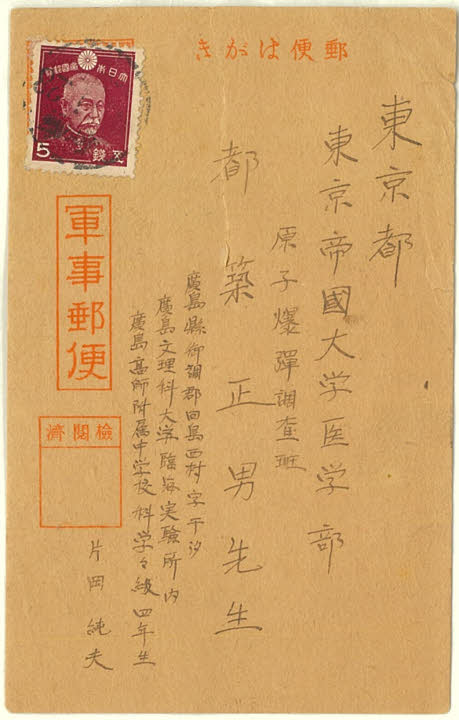 郵便はがき
東京都
東京帝國大学医学部
原子爆彈調査班
都築正男先生
廣島縣御調郡向島西村字干汐
廣島文理科大学臨海実験所内
廣島高師附属中学校科学々級四年生
片岡純夫
大日本帝國郵便
5
五錢
軍事郵便
檢閱濟